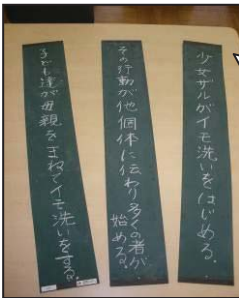 少女ザルがイモ洗いをはじめる。
その行動が他個体に伝わり多くの者が
始める。
子ども達が母親をまねてイモ洗いをする。